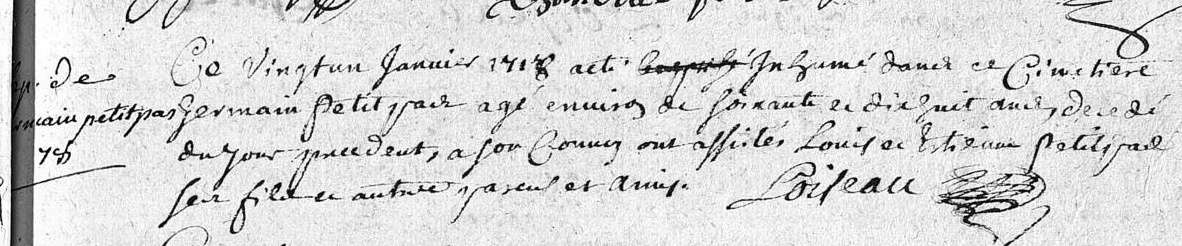 de
Ce vingtun Janvier 1718 acté inhumé dans ce Cimetiere
main petitpas
germain Petitpas agé environ de soixante et dixhuit ans, decedé
78
du jour precedent, a son Convoy ont assistés Louis et Estienne Petitpas
ses fils et autres parens et amis. Loiseau